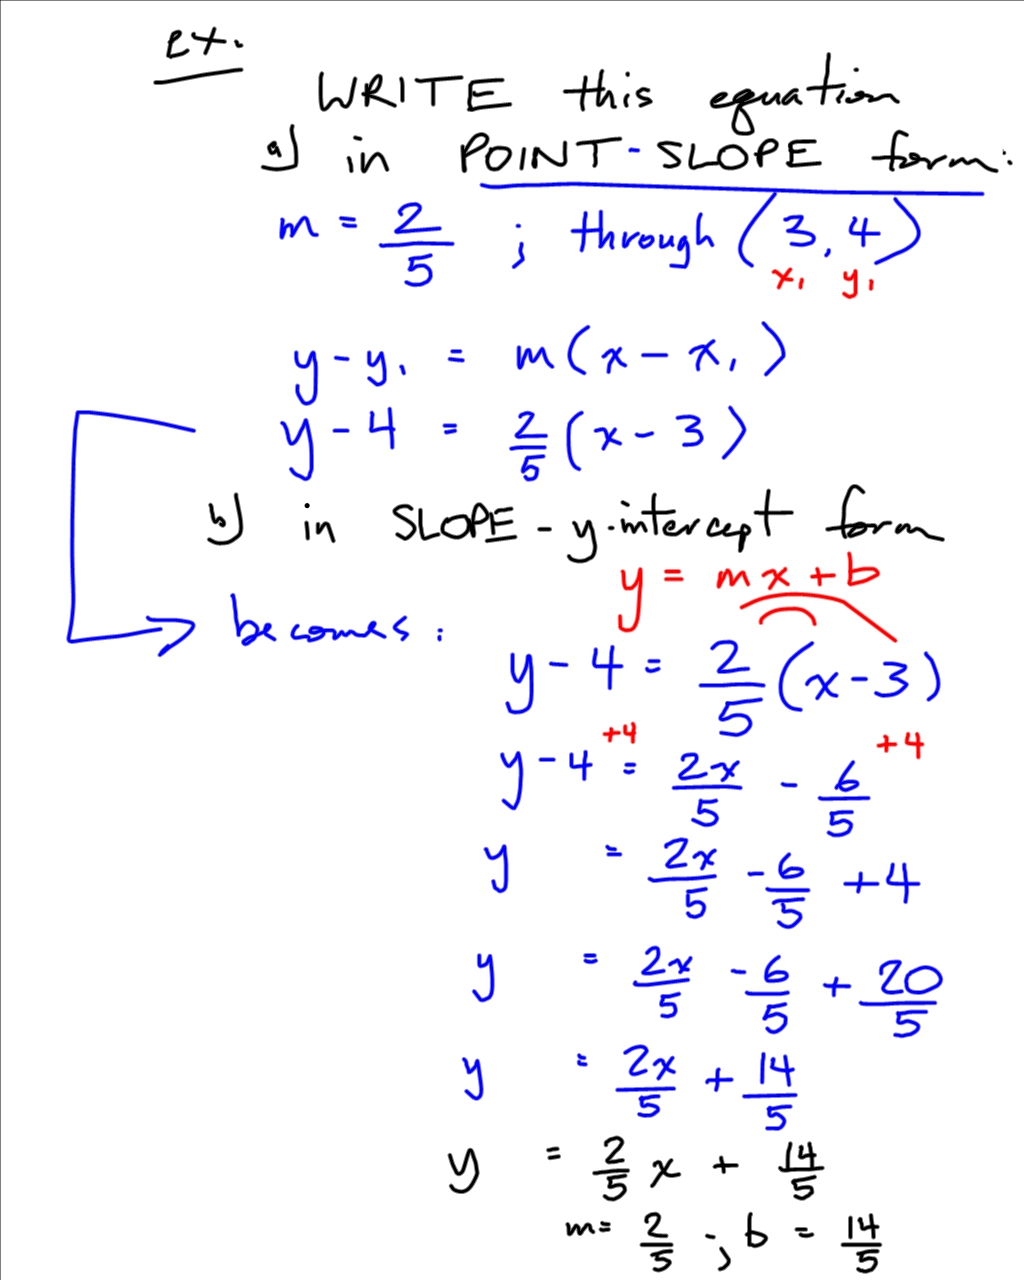 ex.
WRITE this equation
a) in POINT-SLOPE form:
m = 2/5 ; through (3, 4)
x₁ y₁
y - y₁ = m(x - x₁)
y - 4 = 2/5 (x - 3)
b) in SLOPE - y-intercept form
y = mx + b
becomes:
y - 4 = 2/5 (x - 3)
+4 +4
y - 4 = 2x/5 - 6/5
y = 2x/5 - 6/5 + 4
y = 2x/5 - 6/5 + 20/5
y = 2x/5 + 14/5
y = 2/5 x + 14/5
m = 2/5 ; b = 14/5